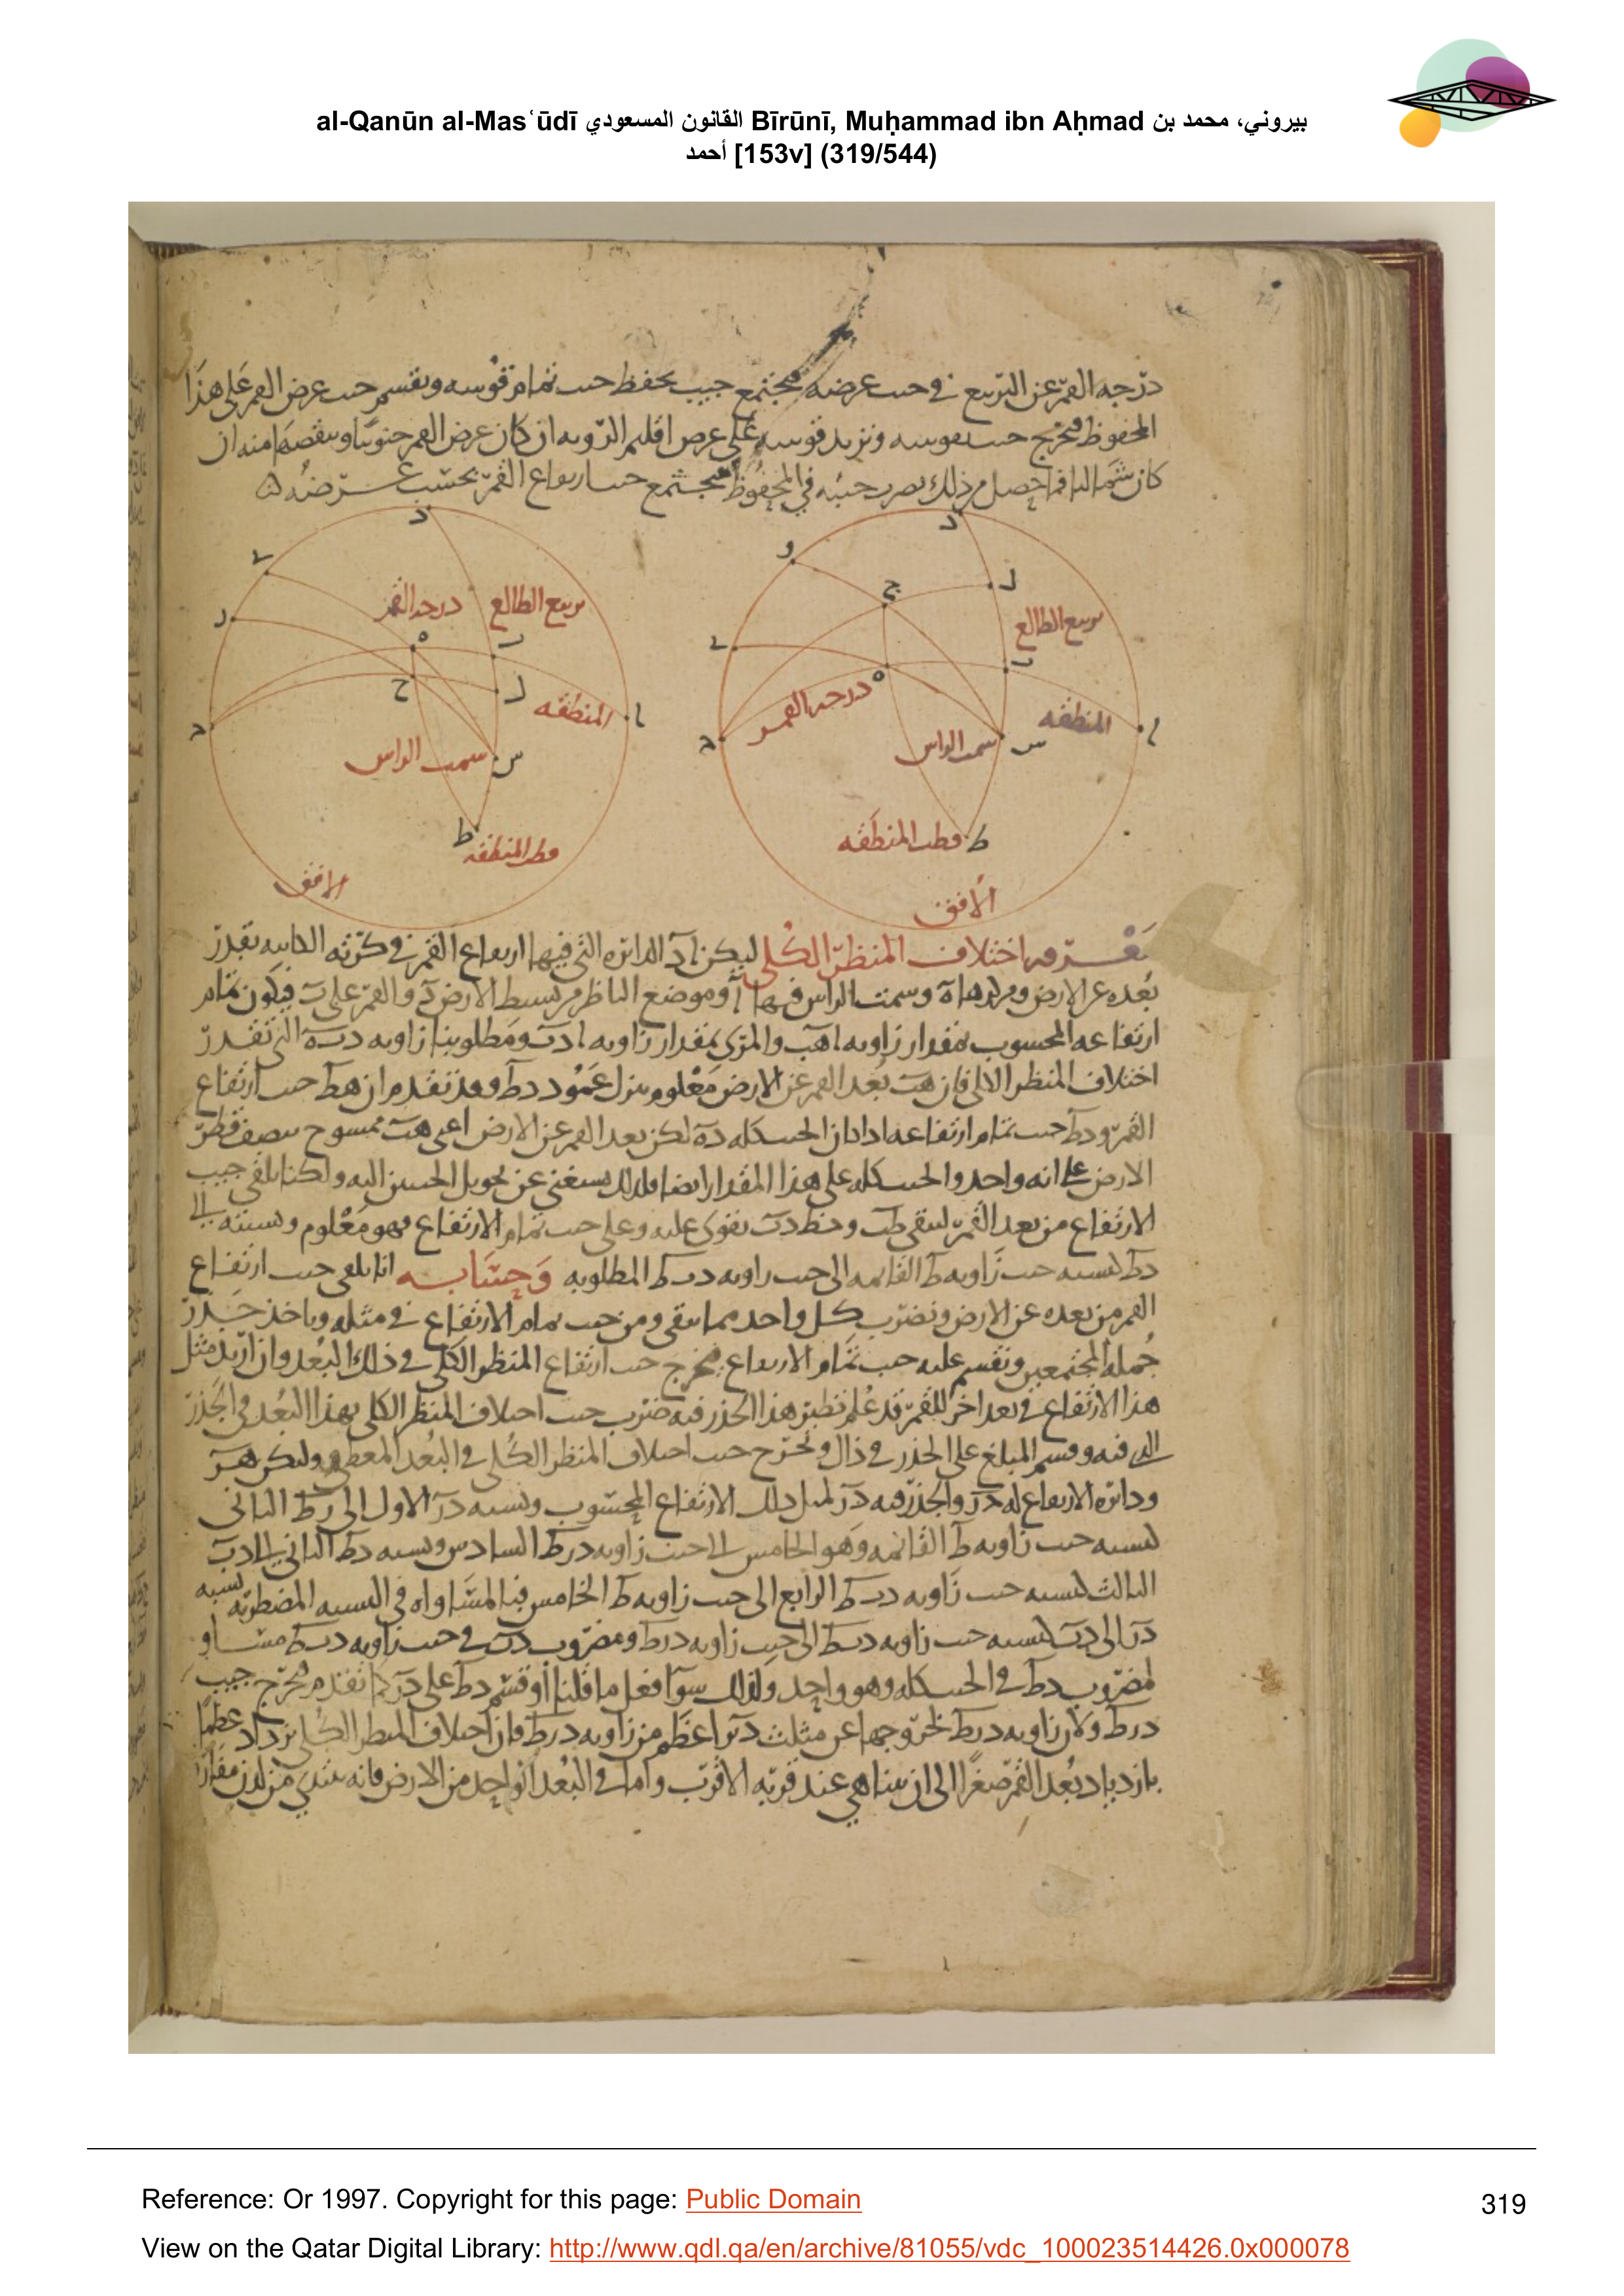 al-Qanūn al-Mas‘ūdī القانون المسعودي Bīrūnī, Muḥammad ibn Aḥmad بيروني، محمد بن
أحمد [153v] (319/544)
درجه القمر عن التربيع في حب عرضه فيجتمع جيب يحفظ حب تمام قوسه ونقسم حب عرض القمر على هذا
المحفوظ فيخرج حب نقوسه ونزيد قوسه على عرض اقليم الرويه ان كان عرض القمر جنوبيا وننقصها منه ان
كان شماليا فما حصل من ذلك نضرب جيبه في المحفوظ فيجتمع حب ارتفاع القمر بحسب عرضه
د
و
ح
ل
تربيع الطالع
ب
ه
درجه القمر
المنطقه
ا
سمت الراس
س
ط
قطب المنطقه
الافق
د
درجه القمر
تربيع الطالع
ه
ب
ح
ل
المنطقه
ا
سمت الراس
س
ط
قطب المنطقه
الافق
معرفه اختلاف المنظر الكلي ليكن اد الدائره التي فيها ارتفاع القمر في كرته بقدر
بعده عن الارض ومركزها ه وسمت الراس فيها ا وموضع الناظر من بسيط الارض د والقمر على ب فيكون تمام
ارتفاعه المحسوب بمقدار زاويه اهب والمرئى بمقدار زاويه ادب ومطلوبنا زاويه دبه التي تقدر
اختلاف المنظر الكلي فان هب بعد القمر عن الارض معلوم ننزل عمود دط وقد تقدم ان هط حب ارتفاع
القمر ودط حب تمام ارتفاعه اذا كان الحب كله ده لكن بعد القمر عن الارض اعني هب ممسوح بنصف قطر
الارض على انه واحد والحب كله على هذا المقدار ايضا فلذلك يستغنى عن تحويل الحبين اليه ولكنا نلقي جيب
الارتفاع من بعد القمر ليبقى طب وخط دب يقوى عليه وعلى حب تمام الارتفاع فهو معلوم ونسبته الى
دط كنسبه حب زاويه ط القائمه الى حب زاويه دبط المطلوبه وحسابه انا نلقى حب ارتفاع
القمر من بعده عن الارض ونضرب كل واحد مما يبقى ومن حب تمام الارتفاع في مثله وناخذ جذر
جمله المجتمعين ونقسم عليه حب تمام الارتفاع فيخرج حب ارتفاع المنظر الكلي في ذلك البعد وان اريد مثل
هذا الارتفاع في بعد اخر للقمر قد علم نظير هذا الجذر فيه ضرب حب اختلاف المنظر الكلي بهذا البعد في الجذر
الذي فيه وقسم المبلغ على الجذر في ذاك ويخرج حب اختلاف المنظر الكلي في البعد المعطى وليكن هر
ودائره الارتفاع له در والجذر فيه در لمثل ذلك الارتفاع المحسوب ونسبه در الاول الى دط الثانى
كنسبه حب زاويه ط القائمه وهو الخامس الى حب زاويه درط السادس ونسبه دط الثاني الى دب
الثالث كنسبه حب زاويه دبط الرابع الى حب زاويه ط الخامس فبالمساواه في النسبه المضطربه نسبه
در الى دب كنسبه حب زاويه دبط الى حب زاويه درط ومضروب دب في حب زاويه دبط مساو
لمضروب دط في الحب كله وهو واحد ولذلك سوآ فعل ما قلنا او قسم دط على در كما تقدم فيخرج جيب
درط ولان زاويه درط لخروجها عن مثلث دبر اعظم من زاويه دبط فان اختلاف المنظر الكلي يزداد عظما
بازدياد بعد القمر صغرا الى ان يتناهي عند قربه الاقرب واما في البعد الواحد من الارض فانه يبتدي من لدن
Reference: Or 1997. Copyright for this page: Public Domain
319
View on the Qatar Digital Library: http://www.qdl.qa/en/archive/81055/vdc_100023514426.0x000078